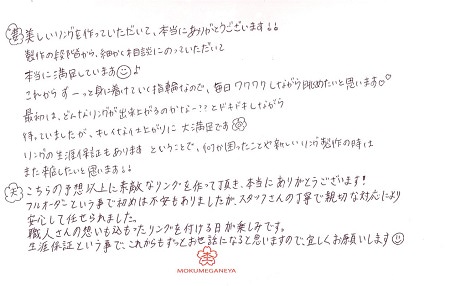 美しいリングを作っていただいて、本当にありがとうございます!!
製作の段階から、細かく相談にのっていただいて
本当に満足しています♪
これから ずーっと身に着けていく指輪なので、毎日ワクワクしながら眺めたいと思います♡
最初は、どんなリングが出来上がるのかなー??とドキドキしながら
待っていましたが、キレイな仕上がりに 大満足です
リングの生涯保証もあります ということで、何か困ったことや新しいリング製作の時は
また来店したいと思います!!
こちらの予想以上に素敵なリングを作って頂き、本当にありがとうございます!
フルオーダーという事で初めは不安もありましたが、スタッフさんの丁寧で親切な対応により
安心して任せられました。
職人さんの想いも込もったリングを付ける日が楽しみです。
生涯保証という事で、これからもずっとお世話になると思いますので、宜しくお願いします
MOKUMEGANEYA